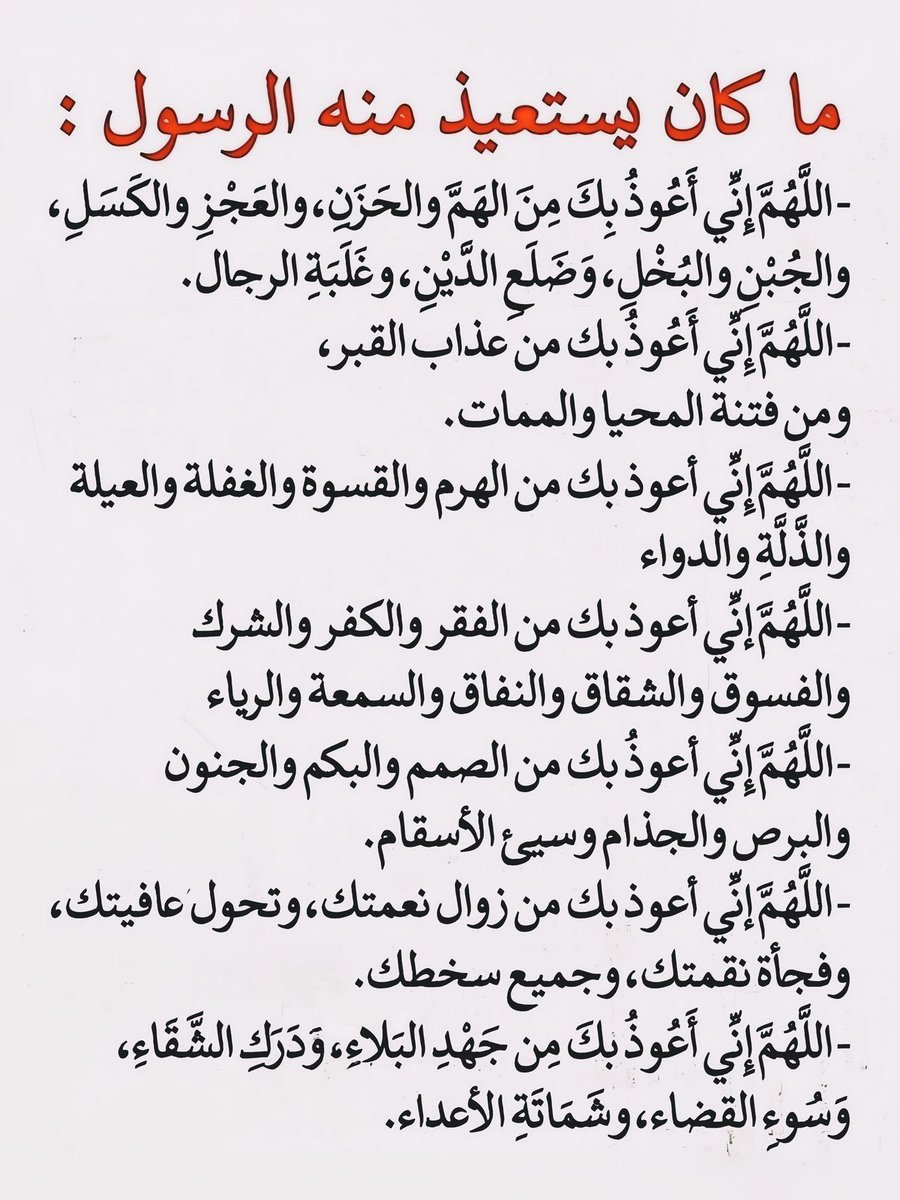 ما كان يستعيذ منه الرسول :
-اللَّهُمَّ إِنِّي أَعُوذُ بِكَ مِنَ الهَمَّ والحَزَنِ، والعَجْزِ والكَسَلِ،
والجُبْنِ والبُخْلِ، وَضَلَعِ الدَّيْنِ، وغَلَبَةِ الرجال.
-اللَّهُمَّ إِنِّي أَعُوذُ بك من عذاب القبر،
ومن فتنة المحيا والممات.
-اللَّهُمَّ إِنِّي أعوذ بك من الهرم والقسوة والغفلة والعيلة
والذَّلَّةِ والدواء
-اللَّهُمَّ إنِّي أعوذ بك من الفقر والكفر والشرك
والفسوق والشقاق والنفاق والسمعة والرياء
-اللَّهُمَّ إِنِّي أعوذُ بك من الصمم والبكم والجنون
والبرص والجذام وسيئ الأسقام.
-اللَّهُمَّ إنِّي أعوذ بك من زوال نعمتك، وتحول عافيتك،
وفجأة نقمتك، وجميع سخطك.
-اللَّهُمَّ إِنِّي أَعُوذُ بكَ مِن جَهْدِ البَلاءِ، وَدَرَكِ الشَّقَاءِ،
وَسُوءِ القضاء، وشَمَاتَةِ الأعداء.